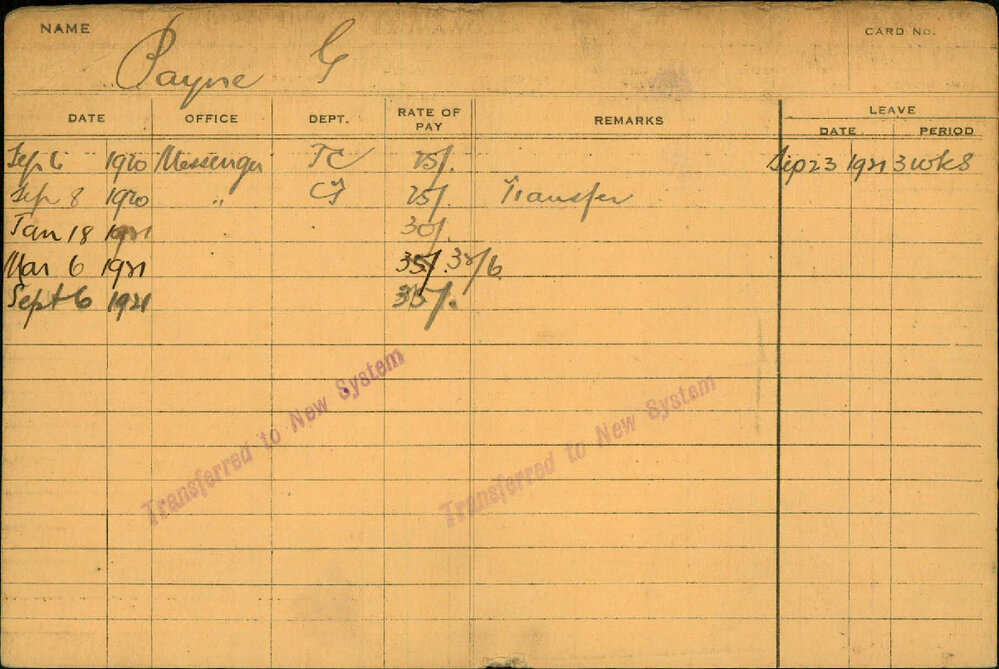 NAME Payne G CARD NO.
DATE OFFICE DEPT. RATE OF PAY REMARKS LEAVE
DATE PERIOD
Sep 6 1920 Messenger TC 25/. Sep 23 1921 3 wks
Sep 8 1920 " 25/. Transfer
Jan 18 1921 30/.
Mar 6 1921 35/. 32/6
Sept 6 1921 35/.
Transferred to New System
Transferred to New System